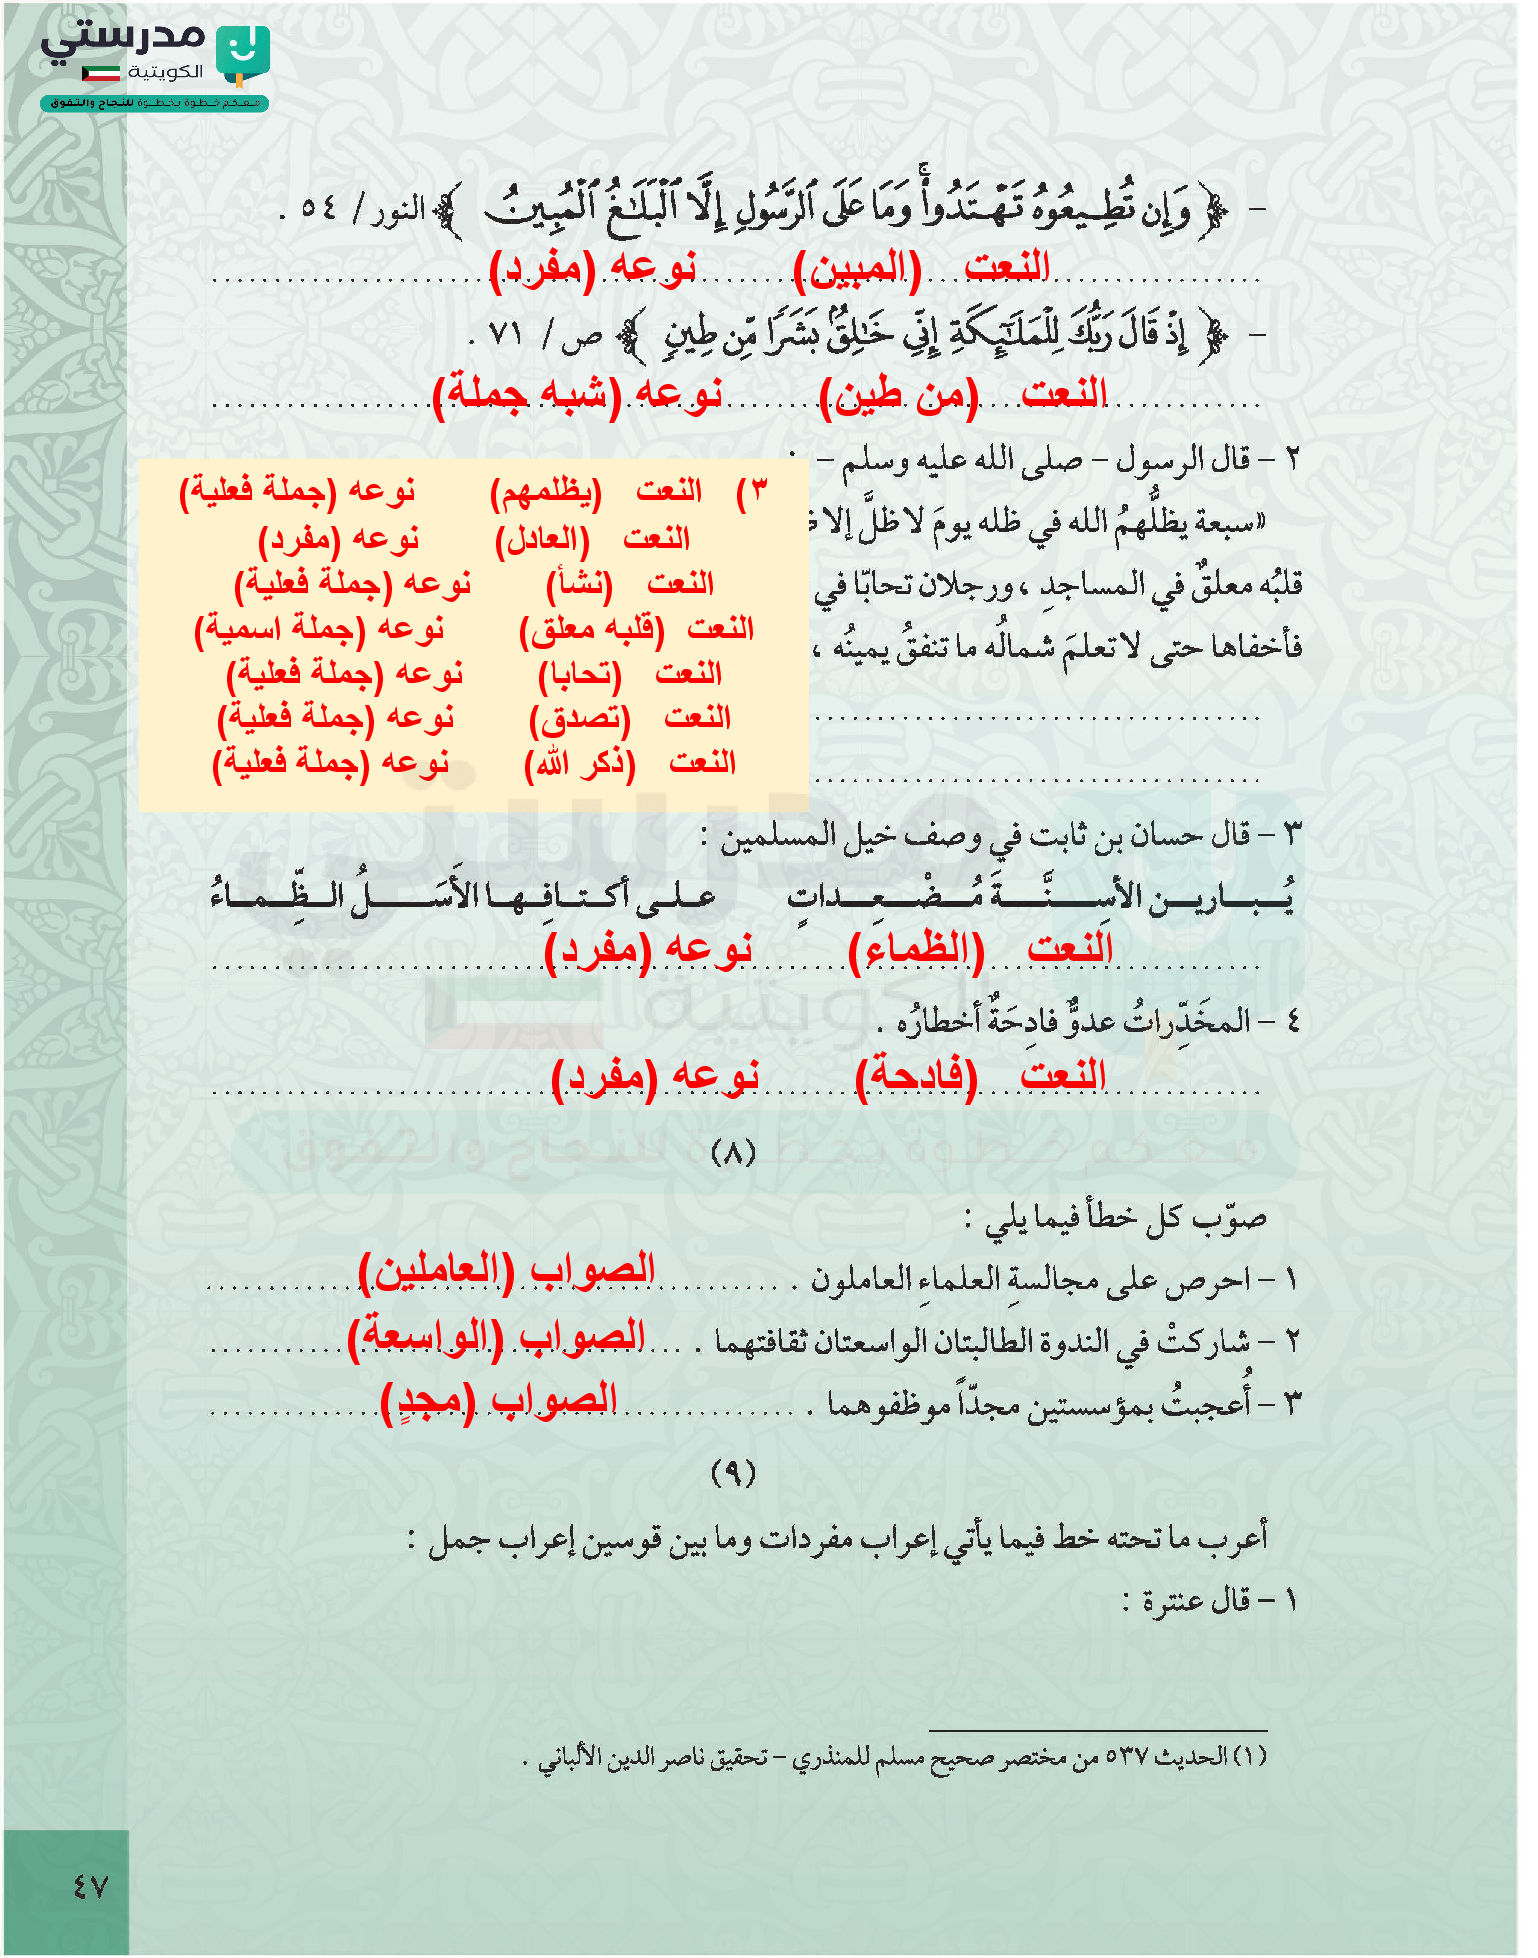 مدرستي
الكويتية
معكم خطوة بخطوة للنجاح والتفوق
- ﴿ وَإِن تُطِيعُوهُ تَهْتَدُواْ وَمَا عَلَى ٱلرَّسُولِ إِلَّا ٱلْبَلَٰغُ ٱلْمُبِينُ ﴾ النور / ٥٤ .
النعت (المبين) نوعه (مفرد)
- ﴿ إِذْ قَالَ رَبُّكَ لِلْمَلَٰٓئِكَةِ إِنِّي خَٰلِقٌۢ بَشَرًا مِّن طِينٍ ﴾ ص / ٧١ .
النعت (من طين) نوعه (شبه جملة)
٢ - قال الرسول - صلى الله عليه وسلم - :
«سبعة يظلُّهمُ الله في ظله يومَ لا ظلَّ إلا
قلبُه معلقٌ في المساجدِ ، ورجلان تحابّا في
فأخفاها حتى لا تعلمَ شمالُه ما تنفقُ يمينُه ،
٣) النعت (يظلمهم) نوعه (جملة فعلية)
النعت (العادل) نوعه (مفرد)
النعت (نشأ) نوعه (جملة فعلية)
النعت (قلبه معلق) نوعه (جملة اسمية)
النعت (تحابا) نوعه (جملة فعلية)
النعت (تصدق) نوعه (جملة فعلية)
النعت (ذكر الله) نوعه (جملة فعلية)
٣ - قال حسان بن ثابت في وصف خيل المسلمين :
يُـبـاريـن الأسِـنَّـةَ مُـضْـعِـداتٍ عـلـى أكـتـافِـهـا الأَسَـلُ الـظِّـمـاءُ
النعت (الظماء) نوعه (مفرد)
٤ - المخَدِّراتُ عدوٌّ فادِحَةٌ أخطارُه .
النعت (فادحة) نوعه (مفرد)
(٨)
صوّب كل خطأ فيما يلي :
١ - احرص على مجالسةِ العلماءِ العاملون . الصواب (العاملين)
٢ - شاركتْ في الندوة الطالبتان الواسعتان ثقافتهما . الصواب (الواسعة)
٣ - أُعجبتُ بمؤسستين مجدّاً موظفوهما . الصواب (مجدٍ)
(٩)
أعرب ما تحته خط فيما يأتي إعراب مفردات وما بين قوسين إعراب جمل :
١ - قال عنترة :
(١) الحديث ٥٣٧ من مختصر صحيح مسلم للمنذري - تحقيق ناصر الدين الألباني .
٤٧